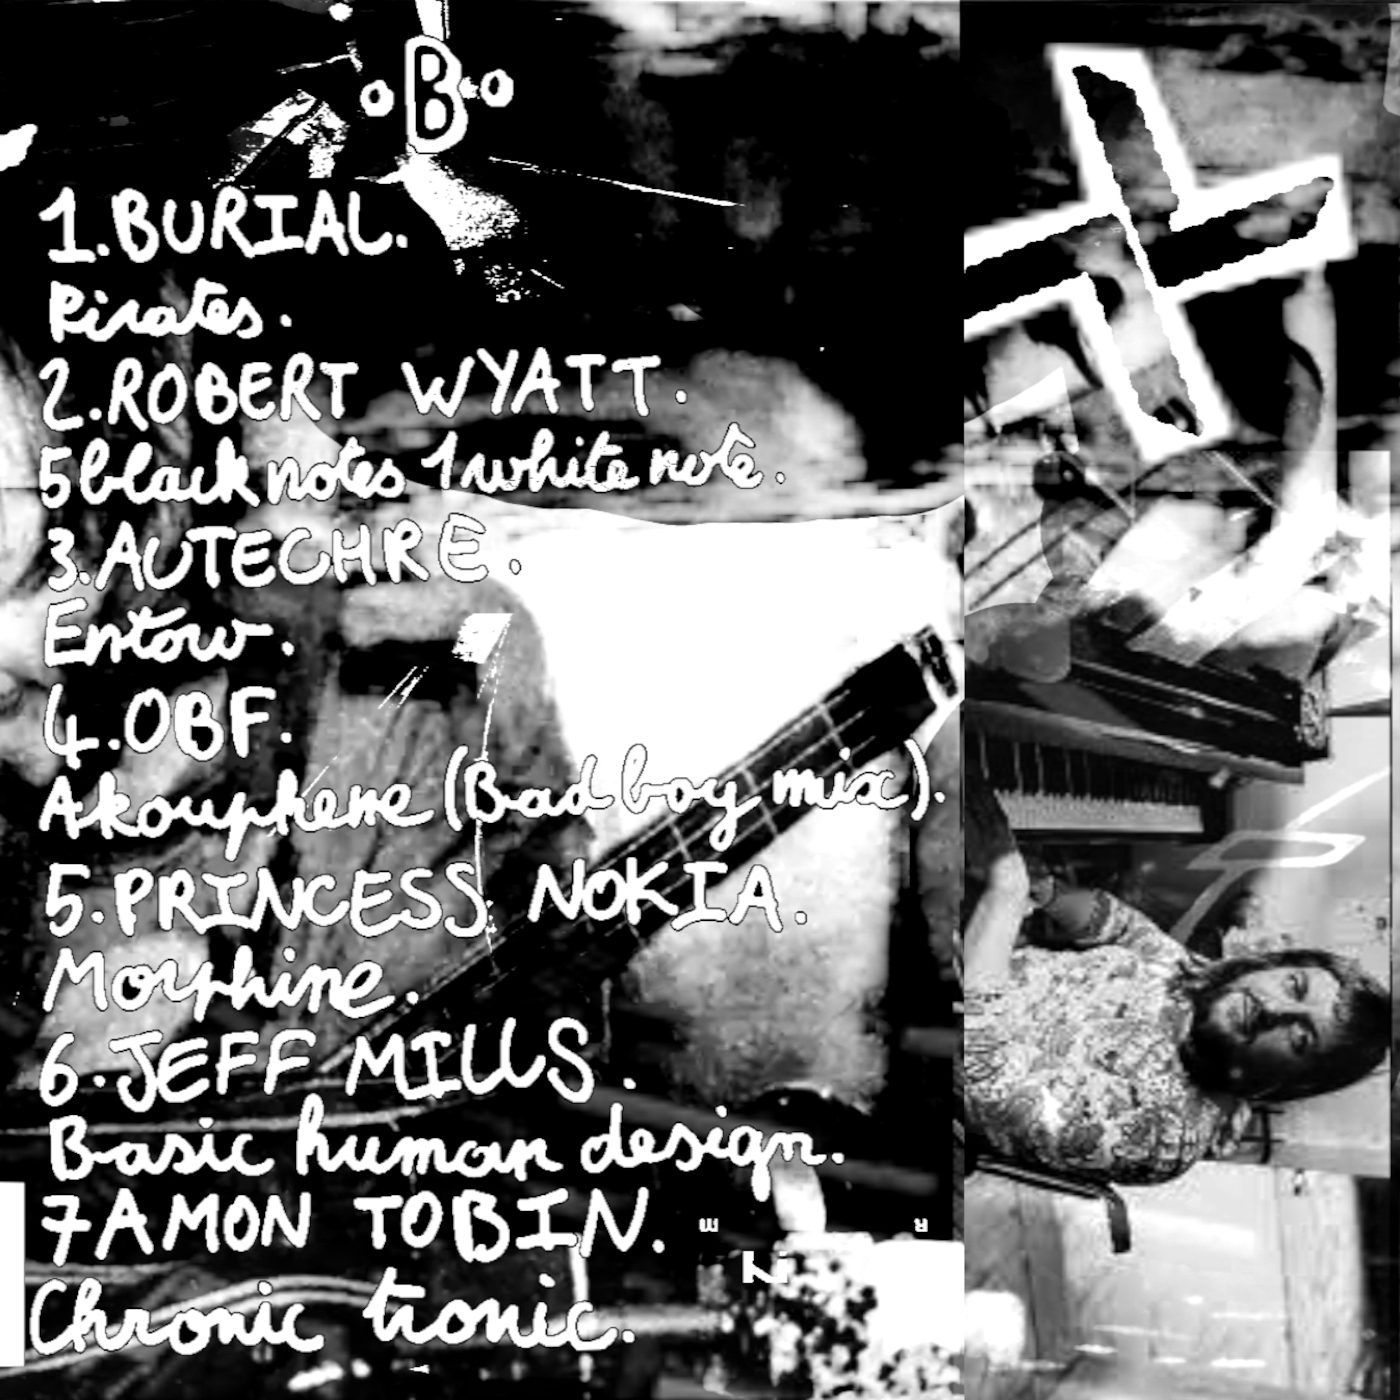 o B o
1.BURIAL.
Pirates.
2.ROBERT WYATT.
5 black notes 1 white note.
3.AUTECHRE.
Entow.
4.OBF.
Akouphene (Bad boy mix).
5.PRINCESS NOKIA.
Morphine.
6.JEFF MILLS.
Basic human design.
7AMON TOBIN.
Chronic tronic.